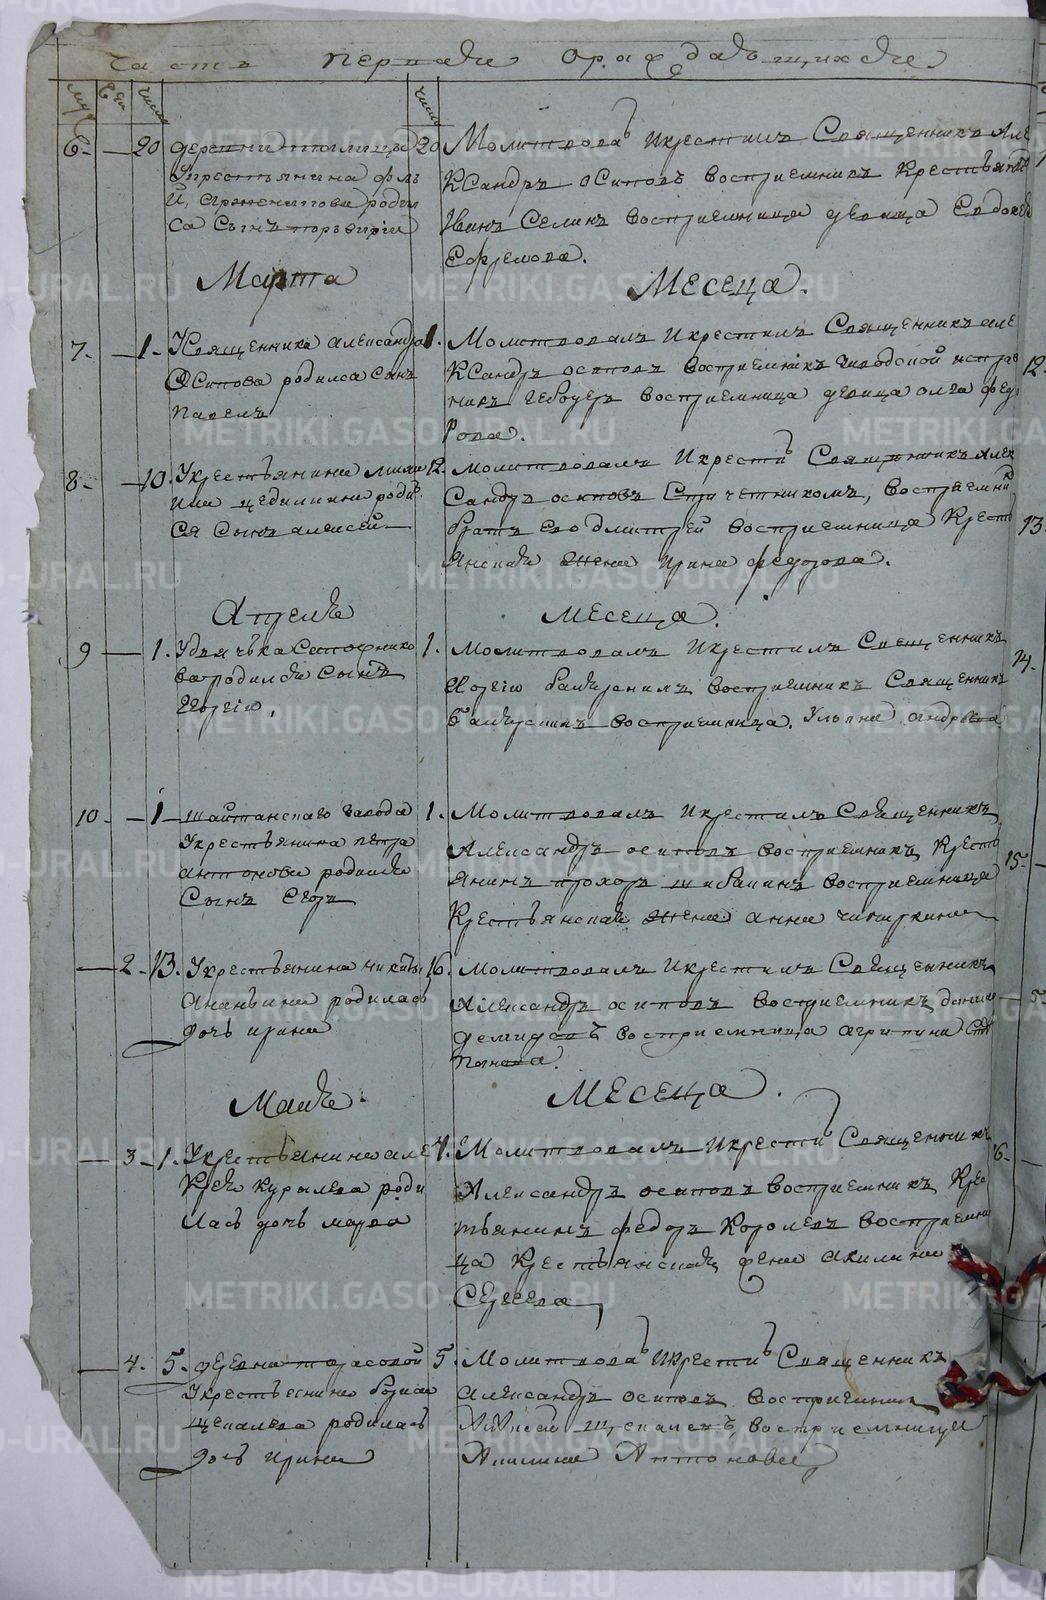 часть первая о раждающихся
муж
жен
число
число
6. — 20 деревни
у крестьянина
родил
ся сынъ порфирiй
20 Молитвовалъ и крестилъ Священникъ Але
ксандръ осиповъ восприемникъ крестьянинъ
Иванъ Селинъ восприемница девица Евдокея
Ефремова.
Марта Месеца.
7. — 1. У священника александра
Осипова родился сынъ
павелъ
1. Молитвовалъ и крестилъ Священникъ але
ксандръ осиповъ восприемникъ заводской исправ
никъ восприемница девица олга фед
рова.
8. — 10. У крестьянина
родил
ся сынъ алексей
12. молитвовалъ и крестилъ Священникъ алек
сандръ осиповъ с причетникомъ, восприемник
братъ ево дмитрей восприемница кресть
янская жена ирина федорова.
Апреля месеца.
9 — 1. У дьячька Сапожнико
ва родился сынъ
Георгiй.
1. Молитвовалъ и крестилъ Священникъ
восприемникъ Священникъ
восприемница. Ульяна андреева
10. — 1 — шайтанскаго завода
у крестьянина петра
антонова родился
сынъ Егоръ
1. Молитвовалъ и крестилъ Священникъ
Александръ осиповъ восприемникъ кресть
янинъ прохоръ шибакинъ восприемница
крестьянская жена анна
— 2 — 13. У крестьянина никиты
Ананьина родилась
дочь ирина
16. Молитвовалъ и крестилъ Священникъ
Александръ осиповъ восприемникъ данило
демидовъ восприемница агрипина Сте
панова.
Маия Месеца.
— 3 — 1. У крестьянина але
ксея курылева роди
лась дочь марва
1. Молитвовалъ и крестилъ Священникъ
Александръ осиповъ восприемникъ крес
тьянинъ федоръ королевъ восприемни
ца крестьянская жена акилина
Сергеева
— 4. 5. деревни тарасовой
у крестьянина бориса
щепалева родилась
дочь ирина
5. Молитвовалъ и крестилъ Священникъ
александръ осиповъ восприемникъ
Алексей щепалевъ, восприемница
Акилина Антонова
12.
13.
14.
15.
5.
6.
METRIKI.GASO-URAL.RU